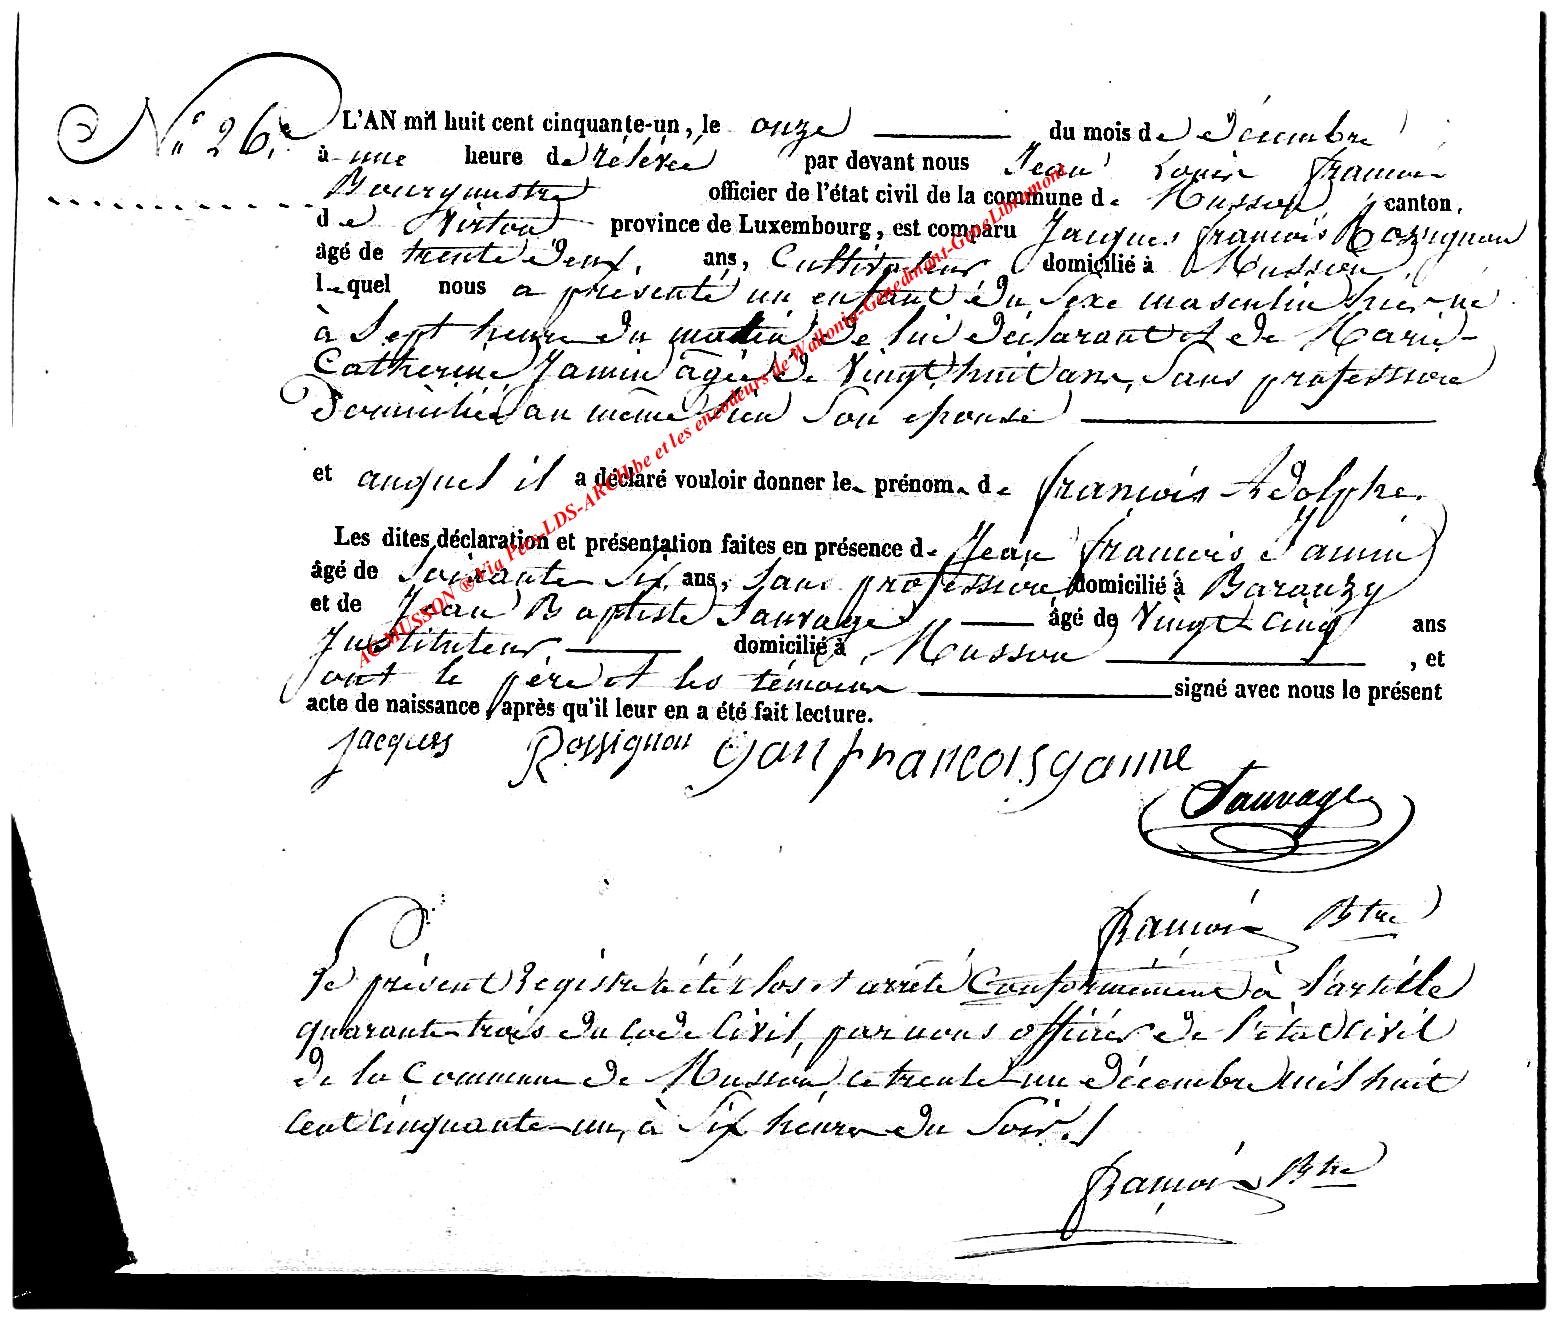 N° 26.
L'AN mil huit cent cinquante-un, le onze du mois de décembre
à une heure de rélévée par devant nous Jean Louis françois
Bourgmestre officier de l'état civil de la commune de Musson, canton
de Virton province de Luxembourg, est comparu Jacques françois Rossignon
âgé de trente deux ans, Cultivateur domicilié à Musson,
lequel nous a présenté un enfant du Sexe masculin hier né
à Sept heure du matin de lui déclarant et de Marie-
Catherine Jamin agée de Vingt huit ans, Sans profession
Domiciliée au même lieu Son épouse
et auquel il a déclaré vouloir donner le prénom de françois Adolphe.
Les dites déclaration et présentation faites en présence de Jean françois Jamin
âgé de Soixante Six ans, Sans profession domicilié à Baranzy
et de Jean Baptiste Sauvage âgé de Vingt-cinq ans
Instituteur domicilié à Musson, et
ont le père et les témoins signé avec nous le présent
acte de naissance, après qu'il leur en a été fait lecture.
Jacques Rossignon Janfrancoisyamne
Sauvage
françois Btre
Le présent Registre a été clos et arrêté Conformément à l'article
quarante-trois du Code Civil, par nous officier de l'état Civil
de la Commune de Musson, ce trente-un décembre mil huit
cent cinquante-un, à Six heures du Soir.
françois Btre
AC MUSSON ® Via Pecs-LDS-ARCH.be et les encodeurs de Wallonia-Genedinant-GeneLibramont